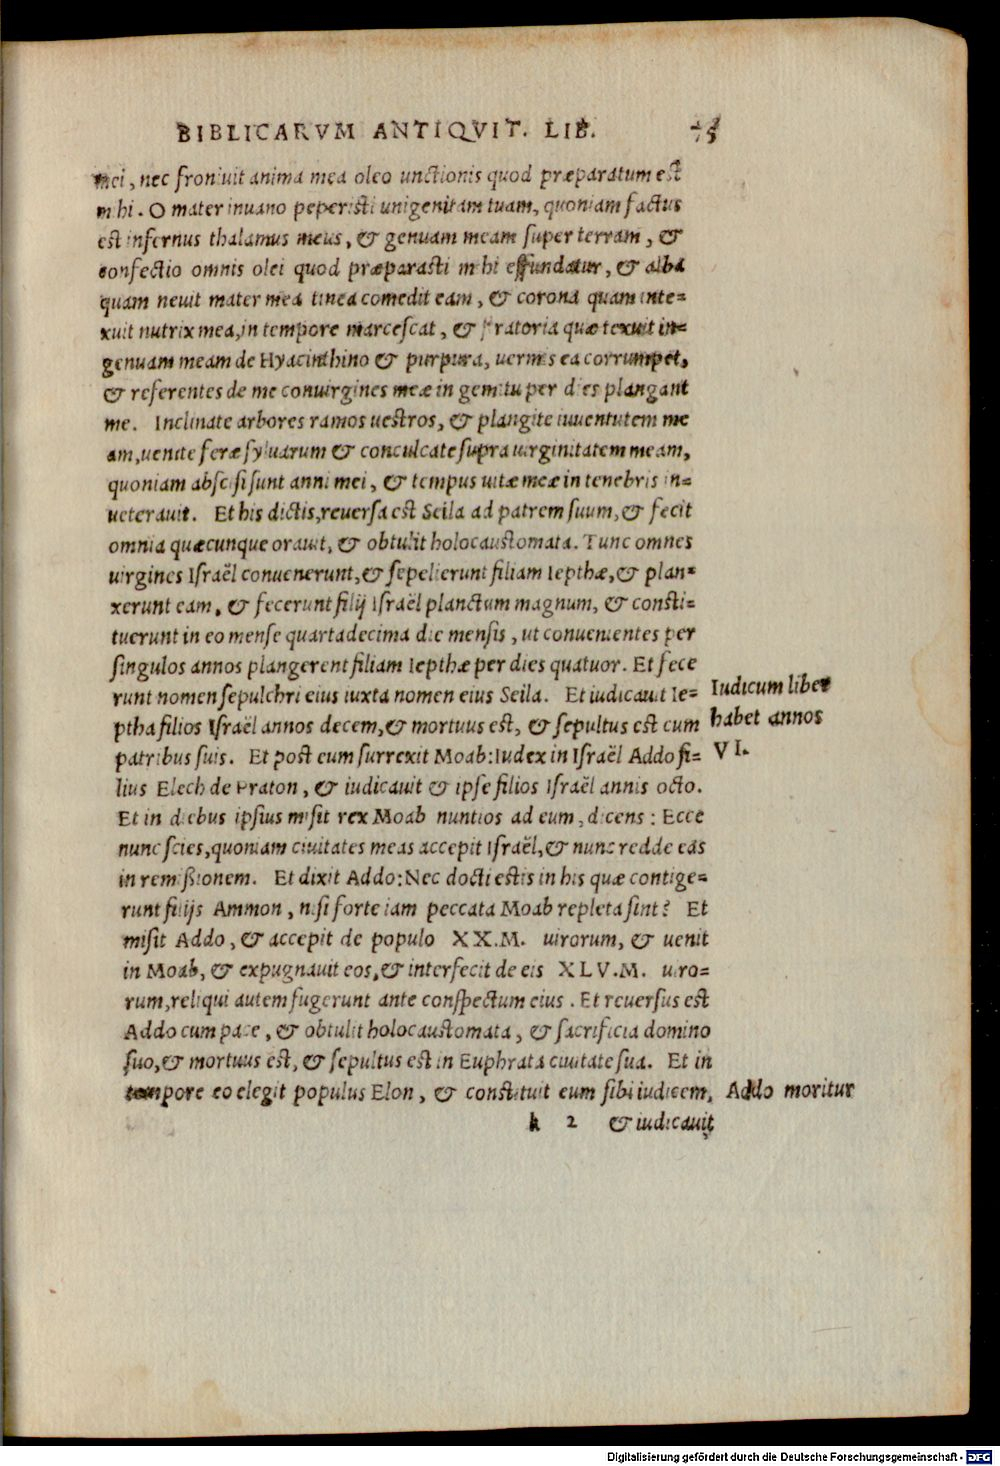 BIBLICARVM ANTIQVIT. LIB. 75
mei, nec froniuit anima mea oleo unctionis quod præparatum est
mihi. O mater inuano peperisti unigenitam tuam, quoniam factus
est infernus thalamus meus, & genuam meam super terram, &
confectio omnis olei quod præparasti mihi effundatur, & alba
quam neuit mater mea tinea comedit eam, & corona quam inte=
xuit nutrix mea, in tempore marcescat, & stratoria quæ texuit in=
genuam meam de Hyacinthino & purpura, uermis ea corrumpet,
& referentes de me conuirgines meæ in gemitu per dies plangant
me. Inclinate arbores ramos uestros, & plangite iuuentutem me
am, uenite feræ syluarum & conculcate supra uirginitatem meam,
quoniam abscisi sunt anni mei, & tempus uitæ meæ in tenebris in=
ueterauit. Et his dictis, reuersa est Seila ad patrem suum, & fecit
omnia quæcunque orauit, & obtulit holocaustomata. Tunc omnes
uirgines Israël conuenerunt, & sepelierunt filiam Iepthæ, & plan=
xerunt eam, & fecerunt filij Israël planctum magnum, & consti=
tuerunt in eo mense quartadecima die mensis, ut conuenientes per
singulos annos plangerent filiam Iepthæ per dies quatuor. Et fece
runt nomen sepulchri eius iuxta nomen eius Seila. Et iudicauit Ie=
ptha filios Israël annos decem, & mortuus est, & sepultus est cum
patribus suis. Et post eum surrexit Moab: Iudex in Israël Addo fi=
lius Elech de Praton, & iudicauit & ipse filios Israël annis octo.
Et in diebus ipsius misit rex Moab nuntios ad eum, dicens: Ecce
nunc scies, quoniam ciuitates meas accepit Israël, & nunc redde eas
in remißionem. Et dixit Addo: Nec docti estis in his quæ contige=
runt filijs Ammon, nisi forte iam peccata Moab repleta sint? Et
misit Addo, & accepit de populo XX.M. uirorum, & uenit
in Moab, & expugnauit eos, & interfecit de eis XLV.M. uiro=
rum, reliqui autem fugerunt ante conspectum eius. Et reuersus est
Addo cum pace, & obtulit holocaustomata, & sacrificia domino
suo, & mortuus est, & sepultus est in Euphrata ciuitate sua. Et in
tempore eo elegit populus Elon, & constituit eum sibi iudicem,
k 2 & iudicauit
Iudicum liber
habet annos
VI.
Addo moritur
Digitalisierung gefördert durch die Deutsche Forschungsgemeinschaft - DFG